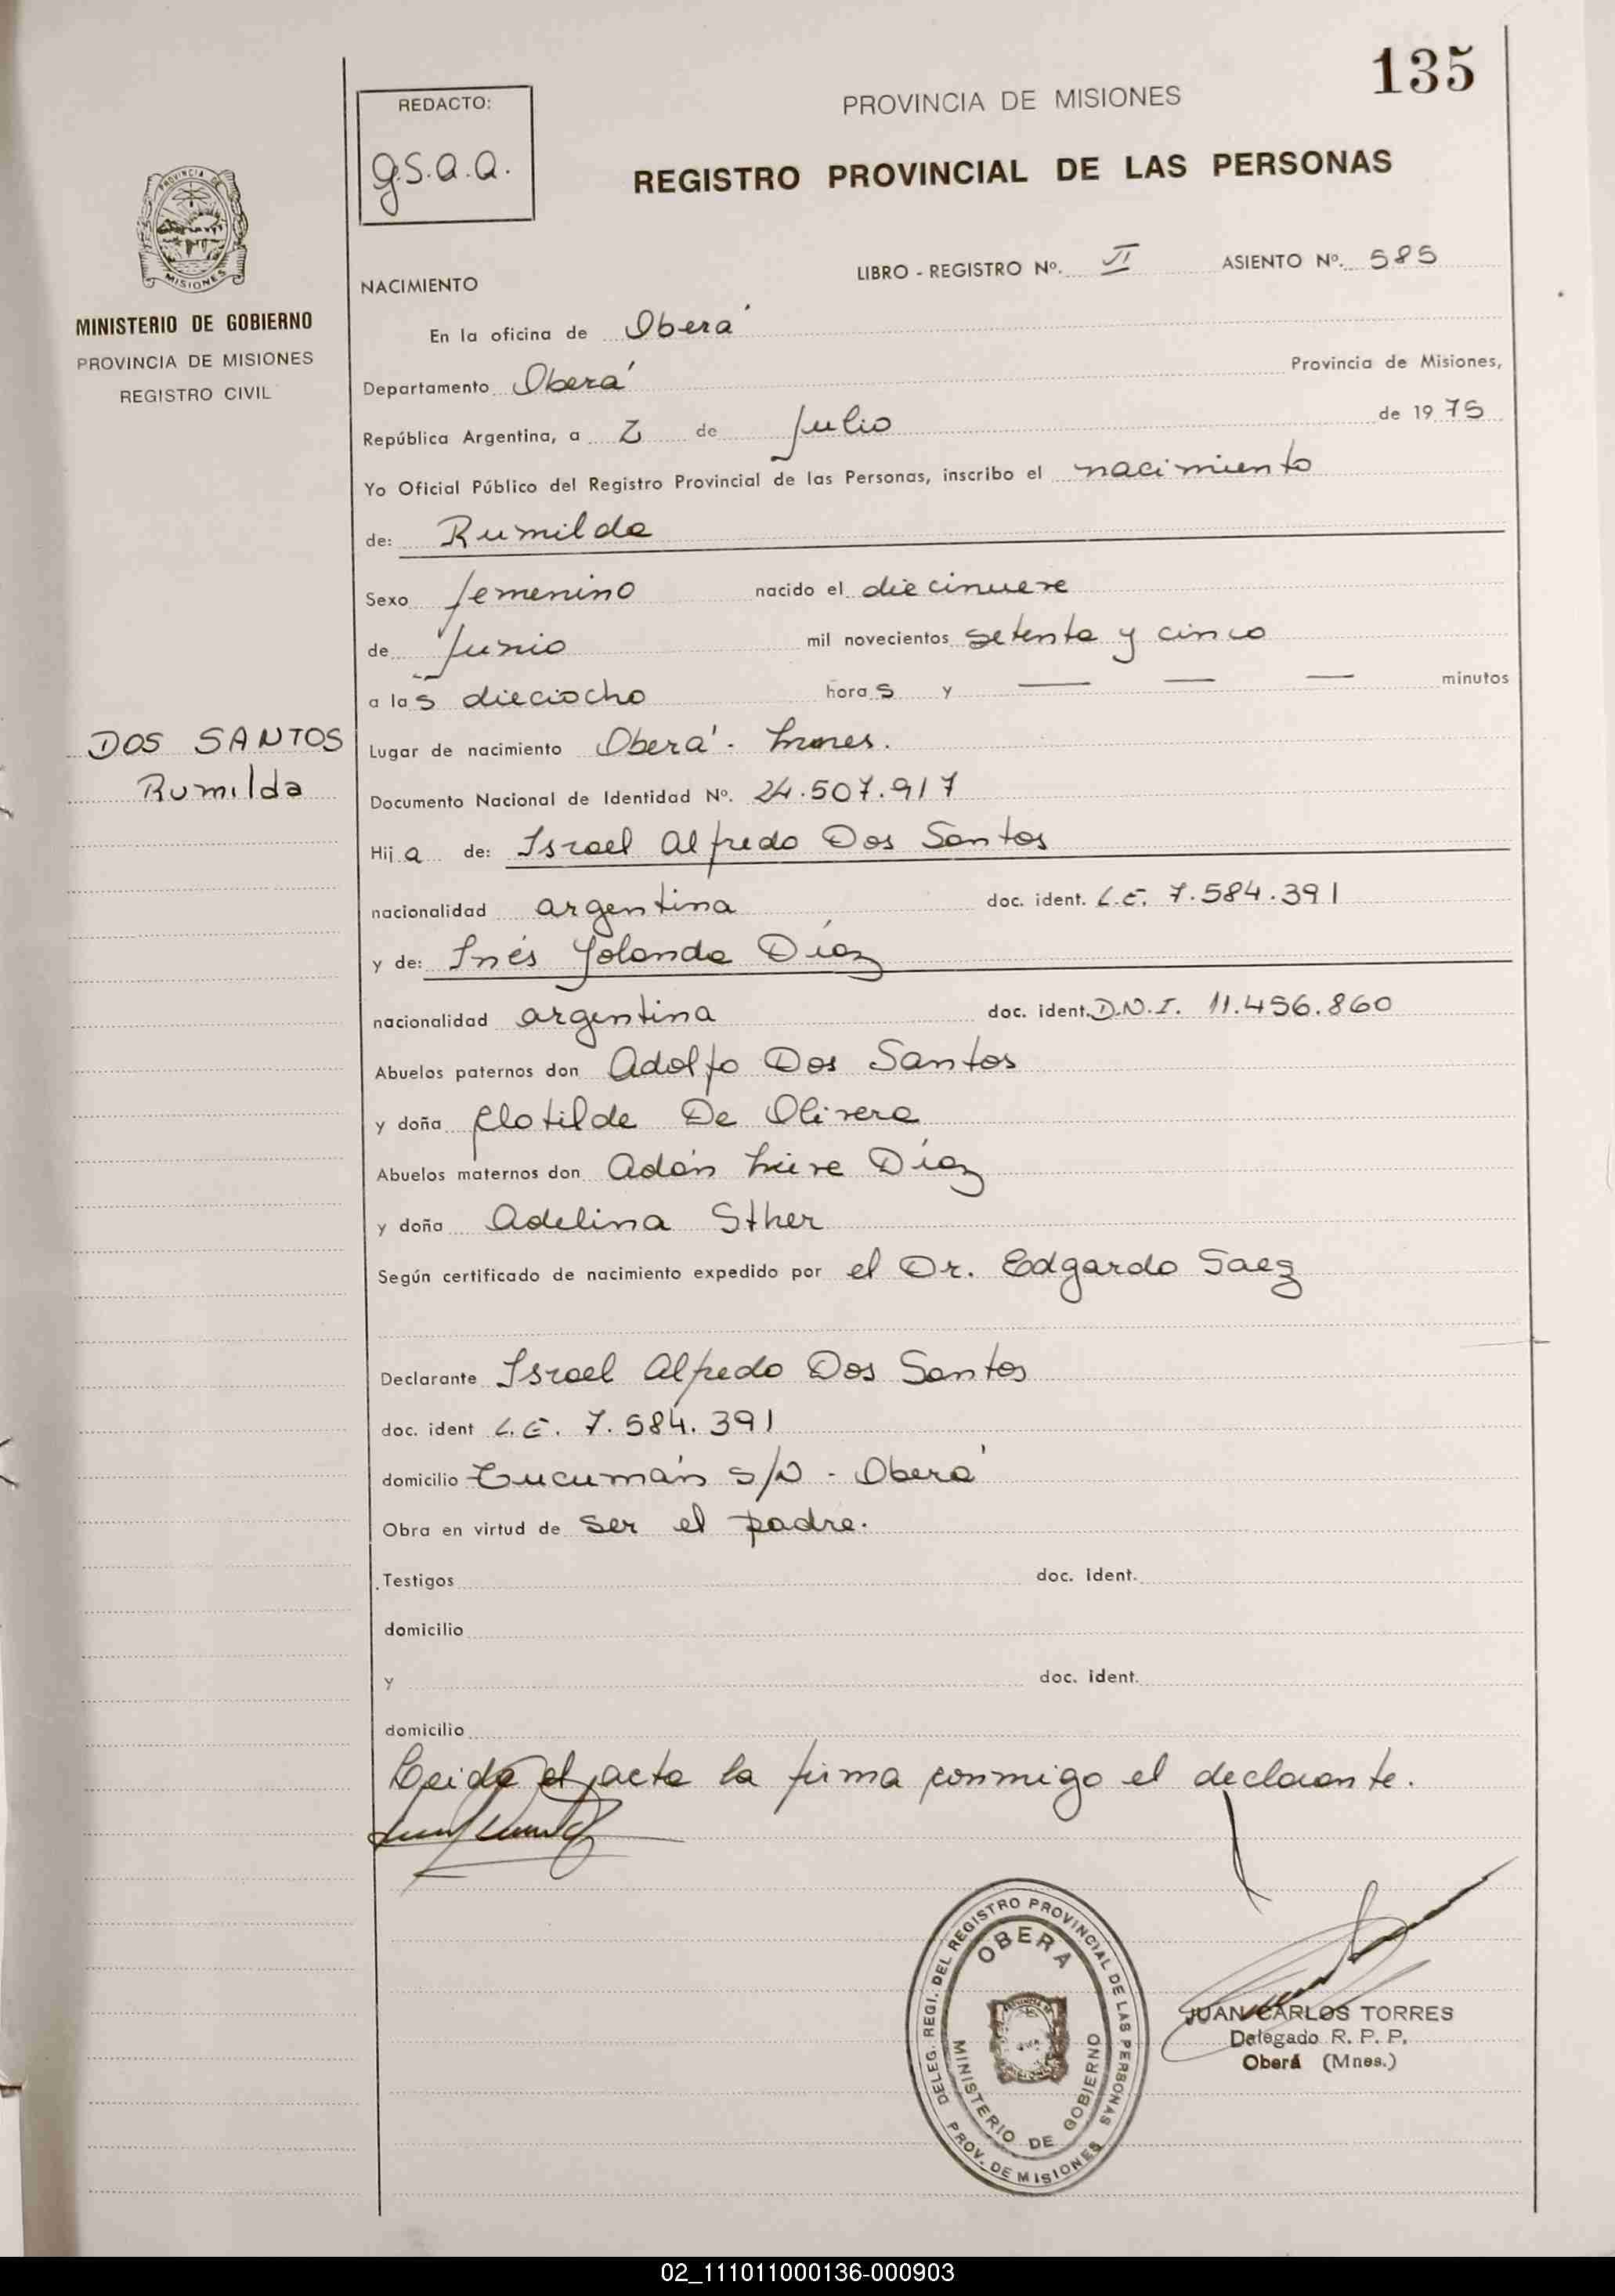 135
REDACTO:
g.s.a.a.
PROVINCIA DE MISIONES
REGISTRO PROVINCIAL DE LAS PERSONAS
PROVINCIA DE
MISIONES
MINISTERIO DE GOBIERNO
PROVINCIA DE MISIONES
REGISTRO CIVIL
LIBRO - REGISTRO Nº. II ASIENTO Nº. 585
NACIMIENTO
En la oficina de Oberá
Departamento Oberá Provincia de Misiones,
República Argentina, a 2 de Julio de 1975
Yo Oficial Público del Registro Provincial de las Personas, inscribo el nacimiento
de: Rumilda
Sexo femenino nacido el diecinueve
de Junio mil novecientos setenta y cinco
a las dieciocho horas y — — — minutos
DOS SANTOS
Rumilda
Lugar de nacimiento Oberá - Mnes.
Documento Nacional de Identidad Nº. 24.507.917
Hija de: Israel Alfredo Dos Santos
nacionalidad argentina doc. ident. L.E. 7.584.391
y de: Inés Yolanda Díaz
nacionalidad argentina doc. ident. D.N.I. 11.456.860
Abuelos paternos don Adolfo Dos Santos
y doña Clotilde De Olivera
Abuelos maternos don Adán Díaz
y doña Adelina Sther
Según certificado de nacimiento expedido por el Dr. Edgardo Saez
Declarante Israel Alfredo Dos Santos
doc. ident L.E. 7.584.391
domicilio Tucumán s/N - Oberá
Obra en virtud de ser el padre.
Testigos doc. ident.
domicilio
y doc. ident.
domicilio
Leida el acta la firma conmigo el declarante.
DELEG. REGI. DEL REGISTRO PROVINCIAL DE LAS PERSONAS
PROV. DE MISIONES
OBERA
MINISTERIO DE GOBIERNO
JUAN CARLOS TORRES
Delegado R. P. P.
Oberá (Mnes.)
02_111011000136-000903